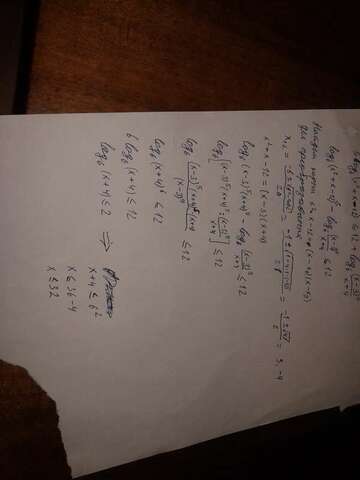 6 log₆(x²+x-12) ≤ 12 + log₆ (x-3)⁵/(x+4)
log₆(x²+x-12)⁵ - log₆ (x-3)⁵/(x+4) ≤ 12
Найдем корни x²+x-12=(x-x₁)(x-x₂)
для преобразования
= -1±√49/2 = 3, -4
x²+x-12=(x-3)(x+4)
log₆(x-3)⁵(x+4)⁵ - log₆ (x-3)⁵/(x+4) ≤ 12
log₆[(x-3)⁵(x+4)⁵ : (x-3)⁵/(x+4)] ≤ 12
log₆ (x-3)⁵(x+4)⁵(x+4)/(x-3)⁵ ≤ 12
log₆(x+4)⁶ ≤ 12
6 log₆(x+4) ≤ 12
log₆(x+4) ≤ 2 ⇒ x+4 ≤ 6²
x ≤ 36-4
x ≤ 32